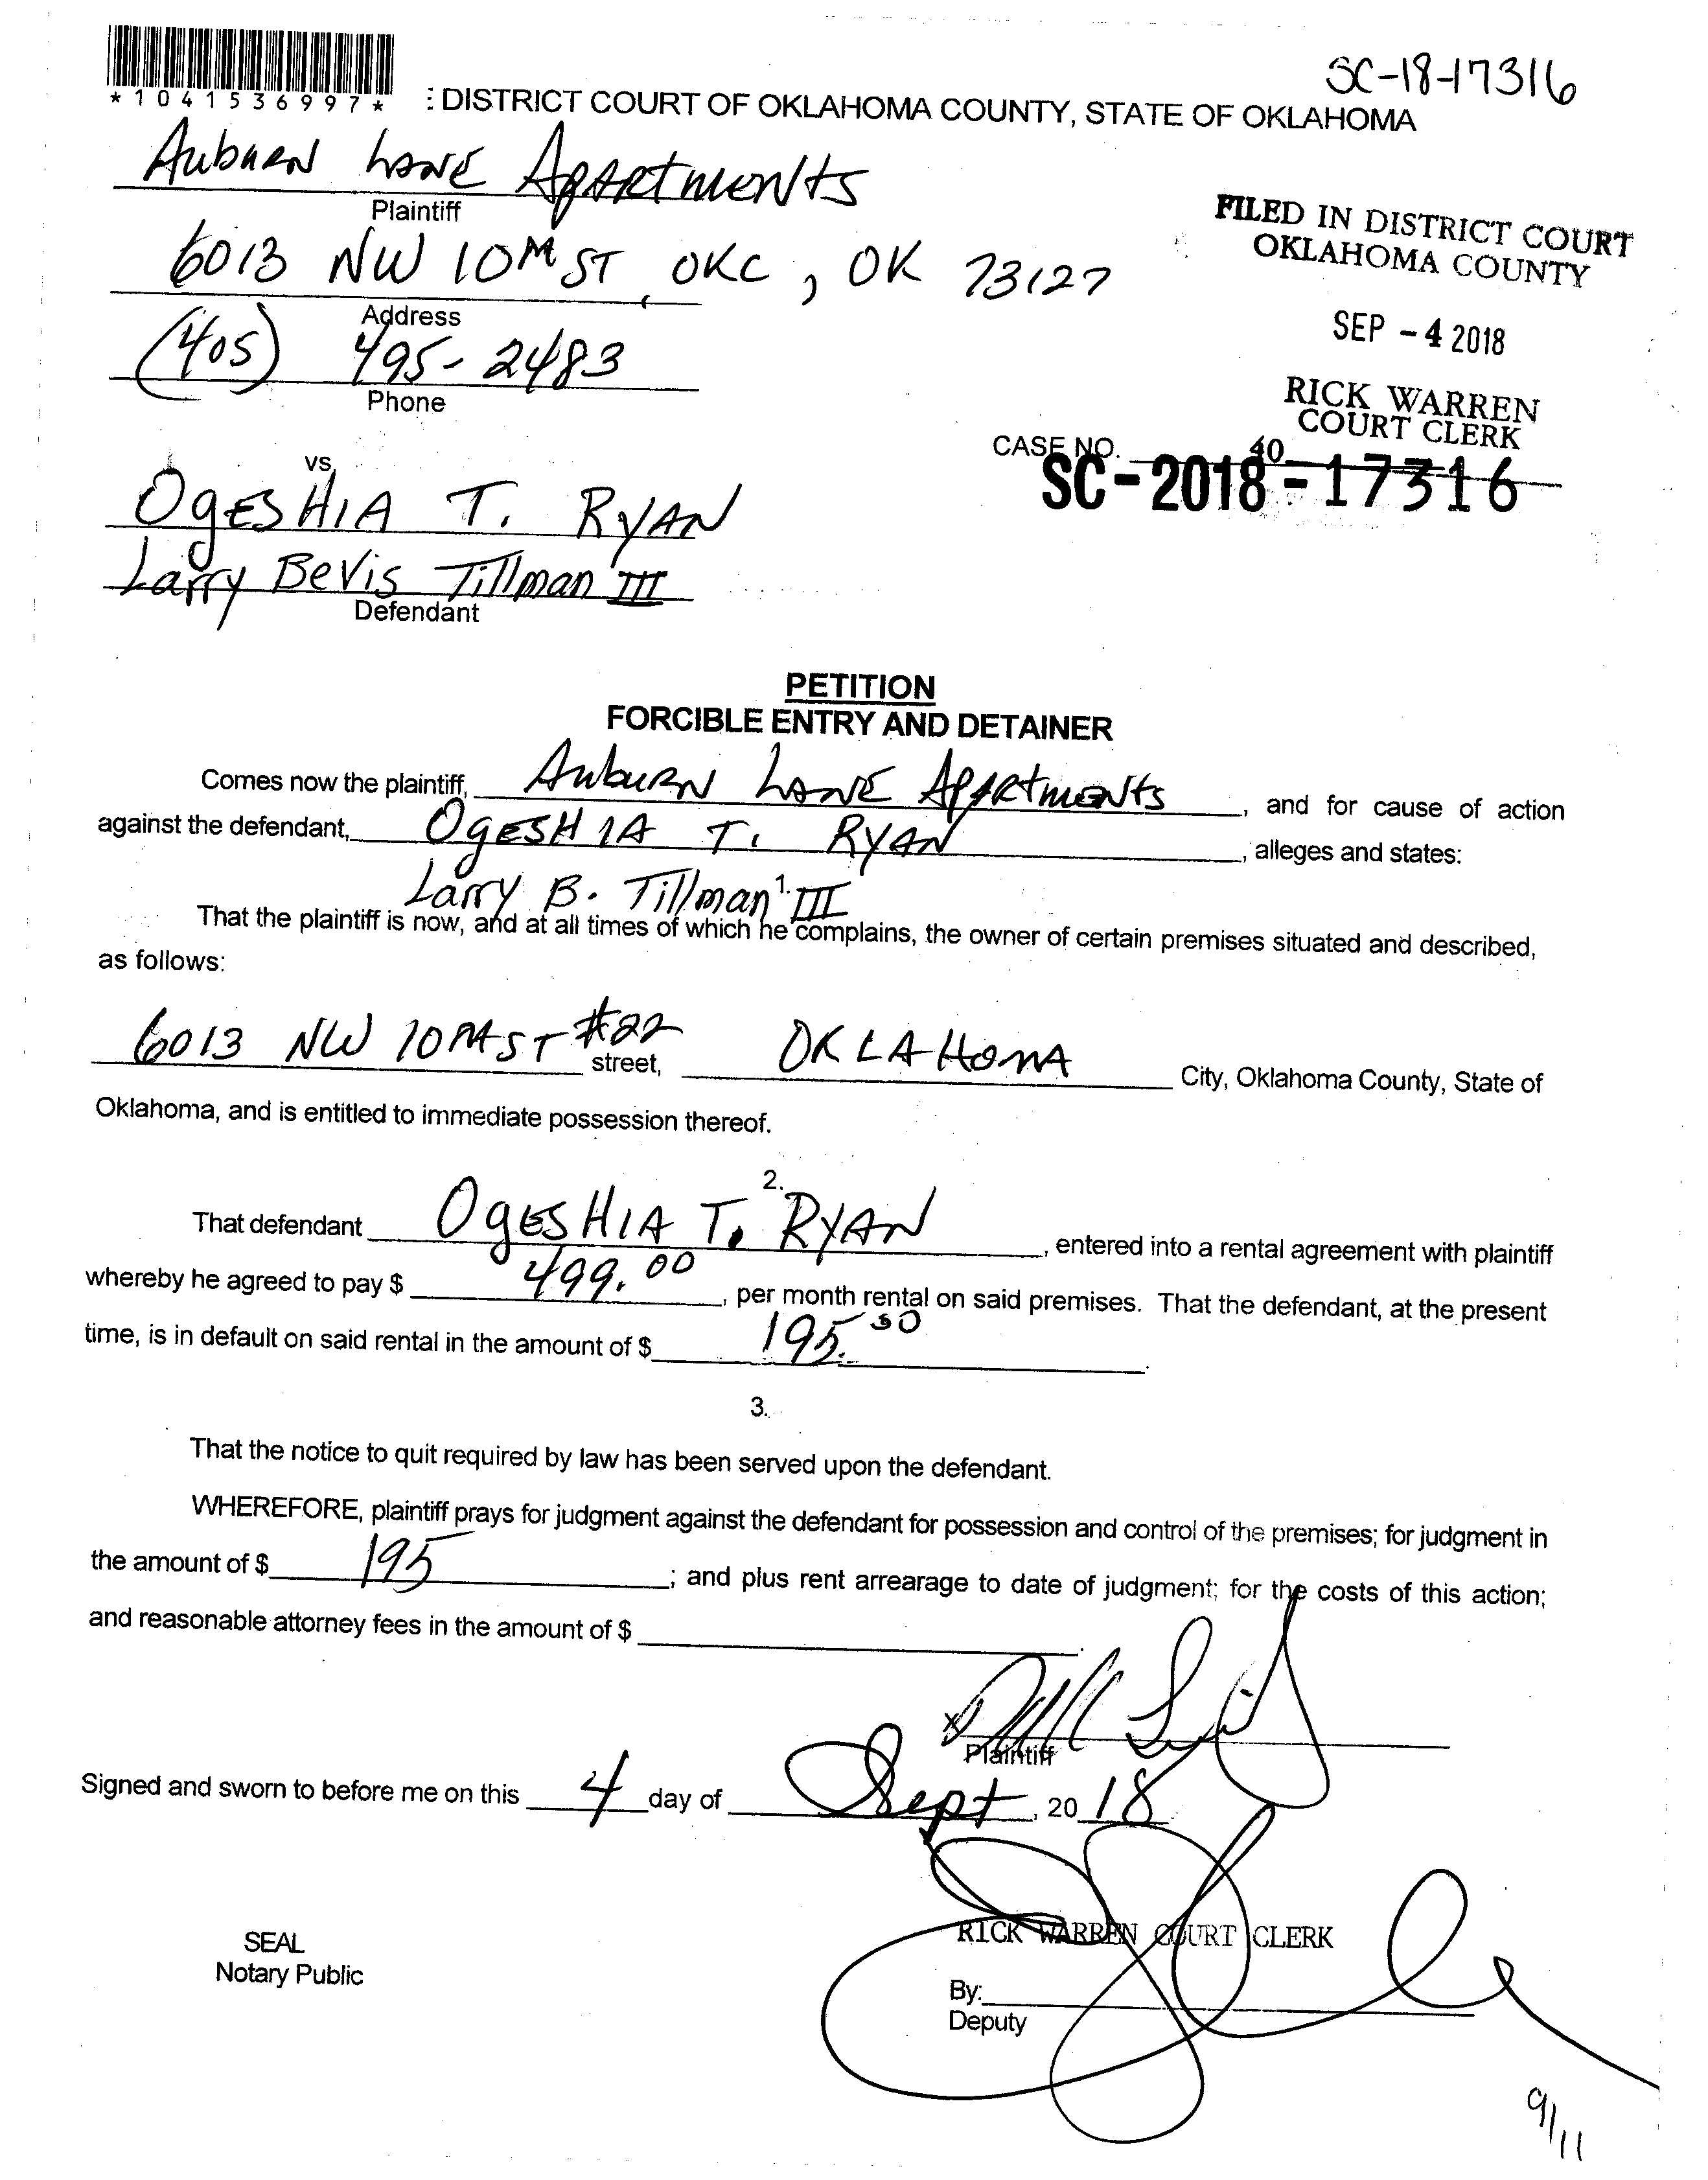 SC-18-17316
*1041536997*
: DISTRICT COURT OF OKLAHOMA COUNTY, STATE OF OKLAHOMA
Auburn Lane Apartments
Plaintiff
6013 NW 10th ST, OKC, OK 73127
Address
(405) 495-2483
Phone
FILED IN DISTRICT COURT
OKLAHOMA COUNTY
SEP -4 2018
RICK WARREN
COURT CLERK
40
CASE NO.
SC-2018-17316
vs.
Ogeshia T. Ryan
Larry Bevis Tillman III
Defendant
PETITION
FORCIBLE ENTRY AND DETAINER
Comes now the plaintiff, Auburn Lane Apartments, and for cause of action
against the defendant, Ogeshia T. Ryan, alleges and states:
Larry B. Tillman III
1.
That the plaintiff is now, and at all times of which he complains, the owner of certain premises situated and described,
as follows:
6013 NW 10th ST #22 street, OKLAHOMA City, Oklahoma County, State of
Oklahoma, and is entitled to immediate possession thereof.
2.
That defendant Ogeshia T. Ryan, entered into a rental agreement with plaintiff
whereby he agreed to pay $ 499.00, per month rental on said premises. That the defendant, at the present
time, is in default on said rental in the amount of $ 195.
3.
That the notice to quit required by law has been served upon the defendant.
WHEREFORE, plaintiff prays for judgment against the defendant for possession and control of the premises; for judgment in
the amount of $ 195; and plus rent arrearage to date of judgment; for the costs of this action;
and reasonable attorney fees in the amount of $
x
Plaintiff
Signed and sworn to before me on this 4 day of Sept, 20 18
RICK WARREN COURT CLERK
SEAL
Notary Public
By:
Deputy
9/11